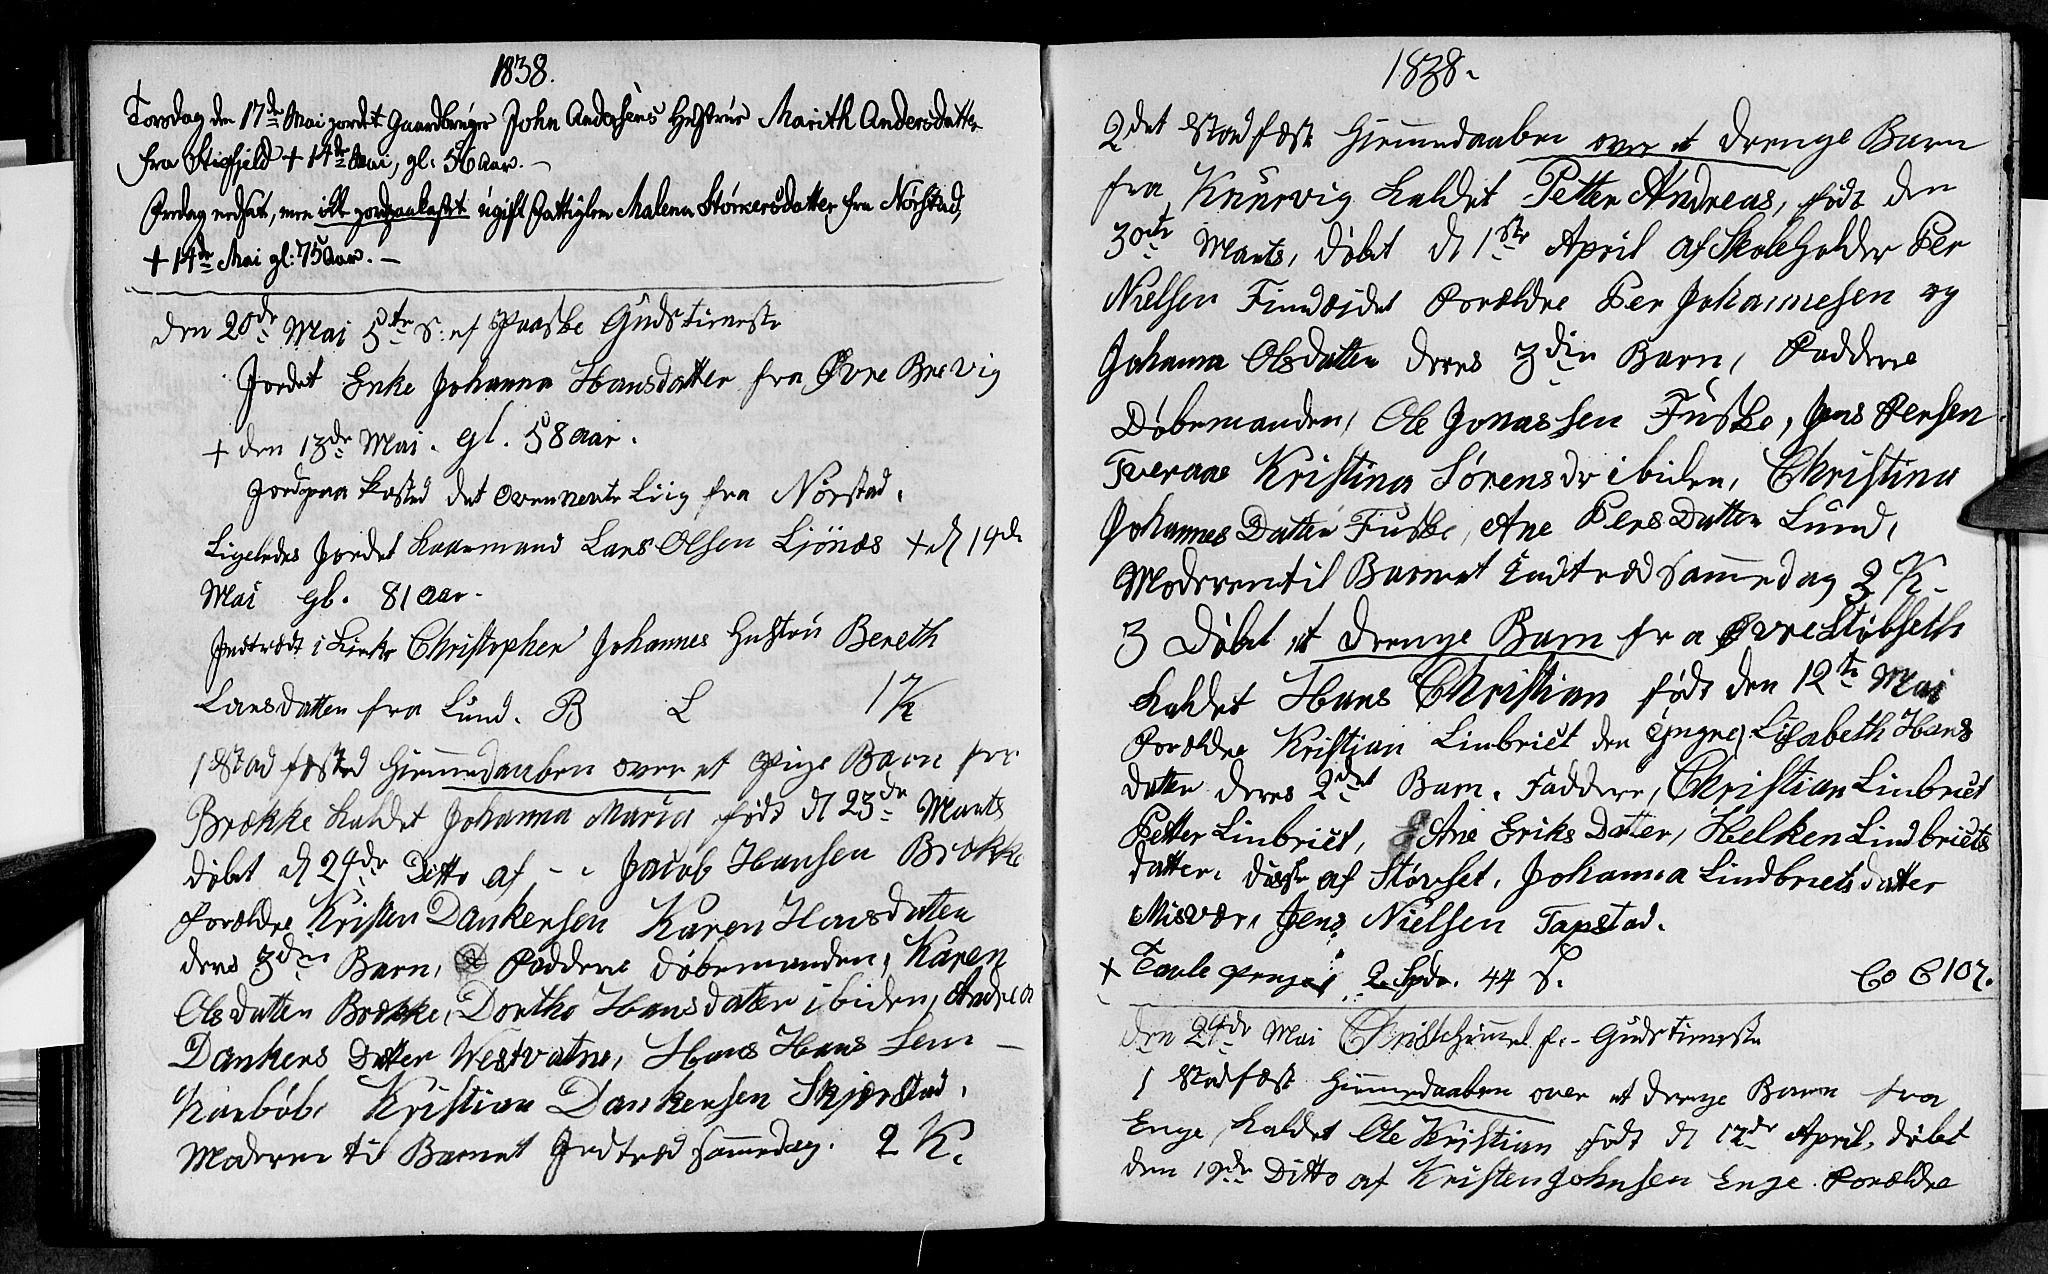 1838.
Torsdag den 17de Mai jordet Gaardbruger John Andersens Hustrue Marith Andersdatter
fra Stigfjeld + 14de Mai, gl: 56 Aar. –
Fredag nedsat, men ikke jordpaakastet ugift Fattiglem Malena Størkersdatter fra Nørstad,
+ 14de Mai gl: 75 Aar. –
den 20de Mai 5te S: ef Paaske Gudstieneste
Jordet Enke Johanna Hansdatter fra Øvre Brevig
+ den 13de Mai. gl. 58 aar.
Jordpaa kasted det ovennente Liig fra Nørstad.
Ligeledes Jordet Kaarmand Lars Olsen Ljönæs + d 14de
Mai gl. 81 aar.
Indtrædt i Kirke Christopher Johannes Hustru Bereth
Larsdatter fra Lund. B L 1 K
1 Stadfæsted Hiemmedaaben over et Pige Barn fra
Brække kaldet Johanna Maria født d 23de Marts
døbt d 24de Ditto af – Jacob Hansen Brække
Forældre Kristen Dankersen Karen Hansdatter
deres 3die Barn, Faddere Døbemanden, Karen
Olsdatter Brække, Dorthe Hansdatter ibiden, Andrea
Dankers Datter Westvatne, Hans Hans Sen –
Kristian Dankersen Skjerstad.
Moderen til Barnet Indtræd sammedag. 2 K.
1838.
2det Stadfæst Hiemmedaaben over et Drenge Barn
fra Knærvig kaldet Petter Andreas, født den
30te Marts, døbt d 1ste April af Skoleholder Per
Nielsen Forældre Per Johannesen og
Johanna Olsdatter deres 3die Barn, Faddere
Døbemanden, Ole Jonassen Fuske, Jens Persen
Tveraae Kristina Sørensdr ibiden, Christina
Johannes Datter Fuske, Ane Pers Datter Lund,
Moderen til Barnet Indtræd sammedag 3 K.
3 Døbt et Drenge Barn fra Øvre Støbseth
kaldet Hans Christian født den 12te Mai
Forældre Kristian Linbriet den Yngre, Lisabeth Hans
datter deres 2det Barn. Faddere, Christian Linbriet
Petter Linbriet, Ane Eriks Datter, Helken Lindbriets
datter. disse af Støvset. Johanna Lindbriets datter
Misvær, Jens Nielsen Tapstad.
+ Tavle penge 2 Spd. 44 S. Co C 107.
den 24de Mai Christi Himmel f.. Gudstieneste
1 Stadfæst Hiemmedaaben over et Drenge Barn fra
Enge, kaldet Ole Kristian født d 17de April, døbt
den 19de Ditto af Kristen Johnsen Enge. Forældre